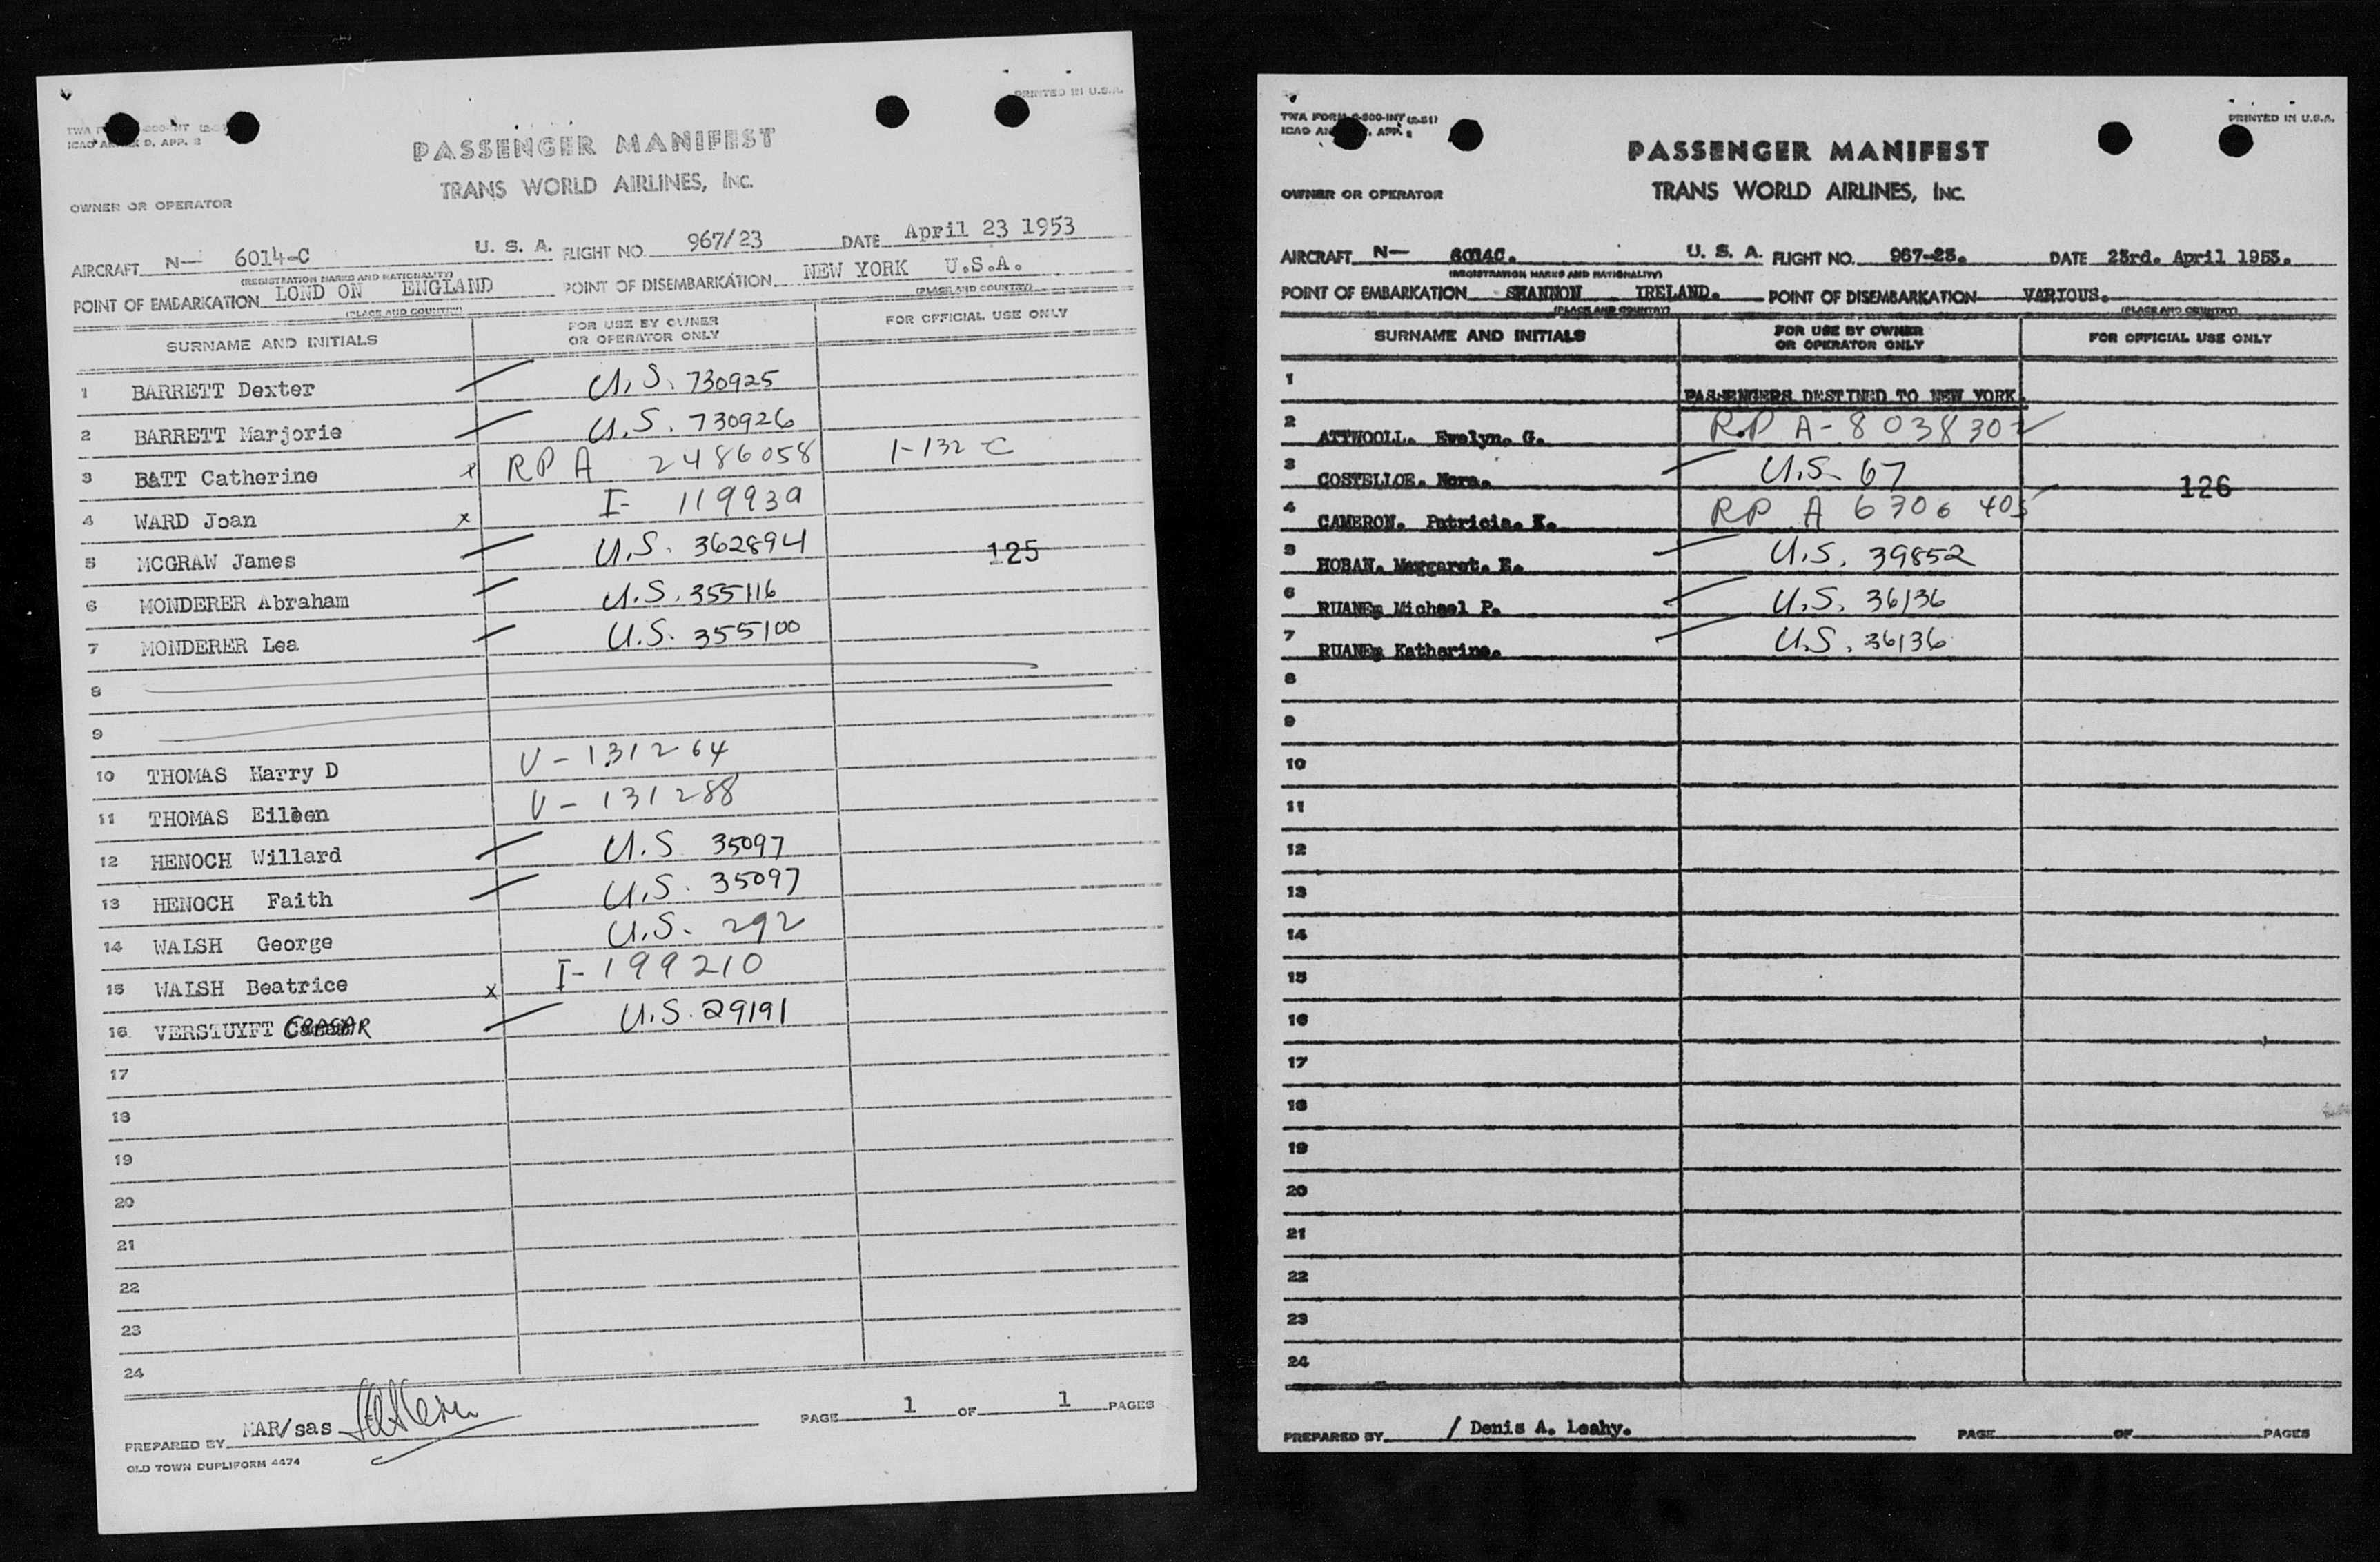 PRINTED IN U.S.A.
ICAO D, APP. 2
PASSENGER MANIFEST
TRANS WORLD AIRLINES, INC.
OWNER OR OPERATOR
AIRCRAFT N- 6014-C U. S. A. FLIGHT NO. 967/23 DATE April 23 1953
(REGISTRATION MARKS AND NATIONALITY)
POINT OF EMBARKATION LOND ON ENGLAND POINT OF DISEMBARKATION NEW YORK U.S.A.
(PLACE AND COUNTRY) (PLACE AND COUNTRY)
SURNAME AND INITIALS FOR USE BY OWNER OR OPERATOR ONLY FOR OFFICIAL USE ONLY
1 BARRETT Dexter U.S. 730925
2 BARRETT Marjorie U.S. 730926
3 BATT Catherine x RP A 2486058 1-132 C
4 WARD Joan x I- 119939
5 MCGRAW James U.S. 362894 125
6 MONDERER Abraham U.S. 355116
7 MONDERER Lea U.S. 355100
8
9
10 THOMAS Harry D V-131264
11 THOMAS Eileen V-131288
12 HENOCH Willard U.S 35097
13 HENOCH Faith U.S. 35097
14 WALSH George U.S. 292
15 WALSH Beatrice x I-199210
16 VERSTUYFT U.S. 29191
17
18
19
20
21
22
23
24
PREPARED BY MAR/sas PAGE 1 OF 1 PAGES
OLD TOWN DUPLIFORM 4474
TWA FORM -500-INT (2-51) PRINTED IN U.S.A.
ICAO APP. 2
PASSENGER MANIFEST
TRANS WORLD AIRLINES, INC.
OWNER OR OPERATOR
AIRCRAFT N- 6014C. U. S. A. FLIGHT NO. 967-23. DATE 23rd. April 1953.
(REGISTRATION MARKS AND NATIONALITY)
POINT OF EMBARKATION SHANNON IRELAND. POINT OF DISEMBARKATION VARIOUS.
(PLACE AND COUNTRY) (PLACE AND COUNTRY)
SURNAME AND INITIALS FOR USE BY OWNER OR OPERATOR ONLY FOR OFFICIAL USE ONLY
1 PASSENGERS DESTINED TO NEW YORK.
2 ATTWOOLL. Evelyn. G. R.P A-8038302
3 COSTELLOE. Nora. U.S. 67 126
4 CAMERON. Patricia. K. RP A 6706 405
5 HOBAN. Margaret. E. U.S. 39852
6 RUANE, Michael P. U.S. 36136
7 RUANE, Katherine. U.S. 36136
8
9
10
11
12
13
14
15
16
17
18
19
20
21
22
23
24
PREPARED BY / Denis A. Leahy. PAGE OF PAGES